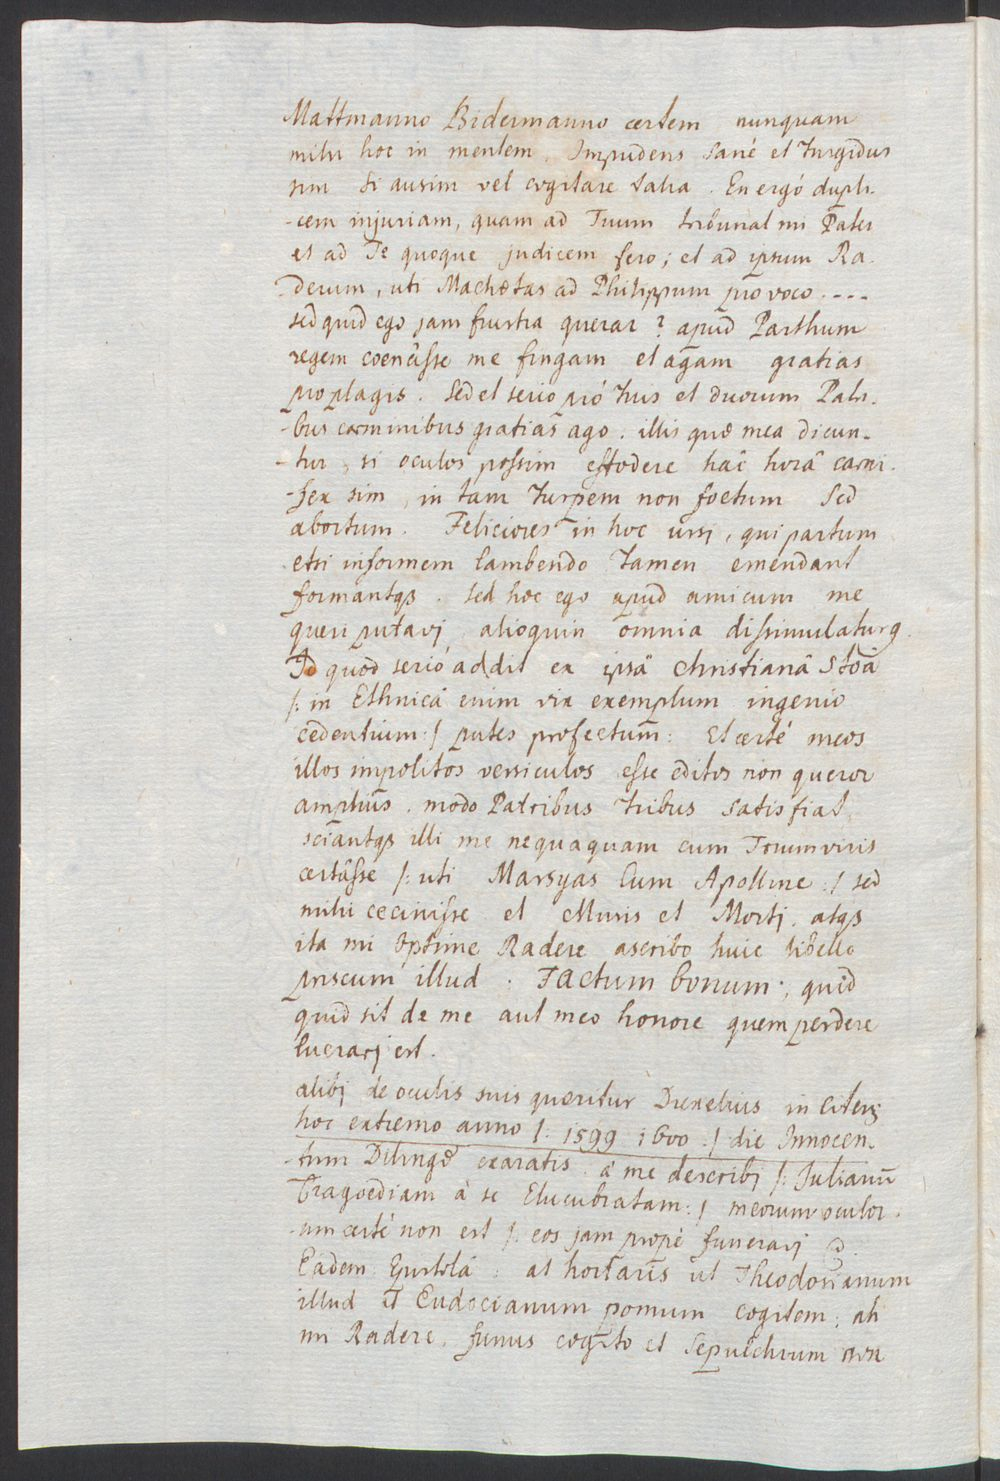 Mattmanno Bidermanno certem nunquam
mihi hoc in mentem. Impudens sanè et turgidus
sim si ausim vel cogitare talia. En ergó dupli-
-cem injuriam, quam ad Tuum tribunal mi Pater
et ad Te quoque judicem fero; et ad ipsum Ra-
-derum, uti Machætas ad Philippum provoco. ---
sed quid ego jam frustra querar? apud Parthum
regem coenâsse me fingam et agam gratias
pro plagis. Sed et serio pró tuis et duorum Patr-
-bus carminibus gratias ago. illis quæ mea dicun-
-tur, si oculos possim effodere hâc horâ carni-
-fex sim, in tam turpem non foetum sed
abortum. Feliciores in hoc ursi, qui partum
etsi informem lambendo tamen emendant
formantqs. sed hoc ego apud amicum me
queri putavj alioquin omnia dissimulaturq.
Id quod serió addit ex ipsâ christianâ Stoâ
/: in Ethnicâ enim vix exemplum ingenio
cedentium :/ putes profectum: Et certé meos
illos impolitos versiculos esse editos non queror
amplius. modo Patribus tribus satis fiat,
sciantqs illi me nequaquam cum Triumviris
certâsse /: uti Marsyas cum Apolline :/ sed
mihi cecinisse et Muris et Mortj. atqs
ita mi optime Radere ascribo huic libello
priscum illud. Factum bonum; quid
quid sit de me aut meo honore quem perdere
lucrarj est.
alibj de oculis suis quæritur Drexelius in literis
hoc extremo anno /: 1599 1600 :/ die Innocen-
-tum Dilingæ exaratis. á me describj /: Julianum
Tragoediam à se Elucubratam :/ meorum oculor-
-um certé non est /: eos jam propé funeravj
Eadem Epistolâ: at hortaris ut Theodosianum
illud et Eudocianum pomum cogitem; ah
mi Radere, funus cogito et sepulchrum non